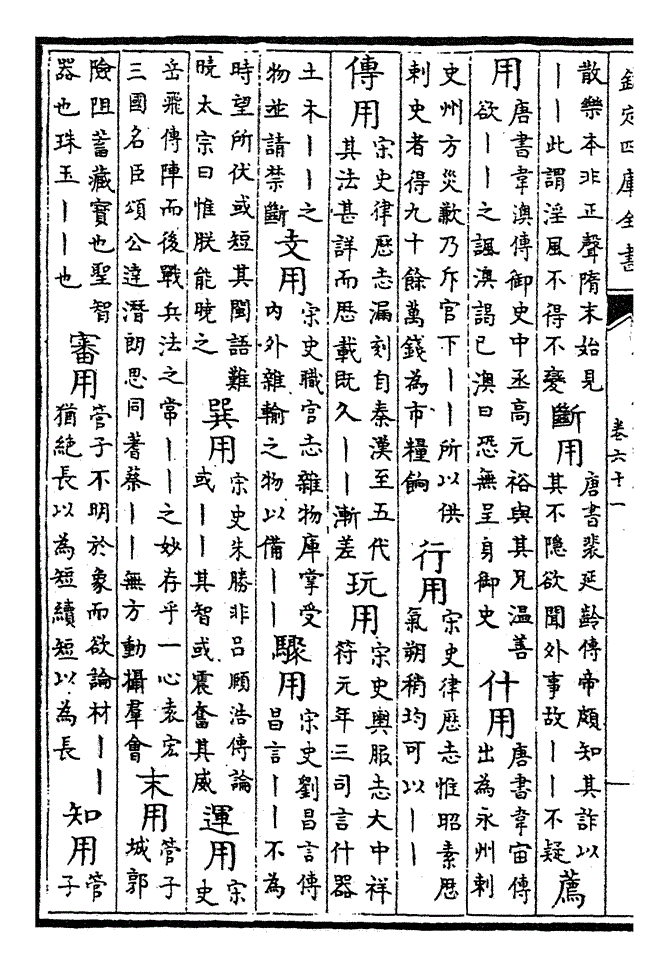 欽定四庫全書
卷六十一
散樂本非正聲隋末始見
丨丨此謂淫風不得不變
斷用
唐書裴延齡傳帝頗知其詐以
其不隱欲聞外事故丨丨不疑
薦
用
唐書韋澳傳御史中丞高元裕與其兄溫善
欲丨丨之諷澳謁已澳曰恐無呈身御史
什用
唐書韋宙傳
出為永州刺
史州方災歉乃斥官下丨丨所以供
刺史者得九十餘萬錢為市糧餉
行用
宋史律歴志惟昭素歴
氣朔稍均可以丨丨
傳用
宋史律歴志漏刻自秦漢至五代
其法甚詳而歴載既久丨丨漸差
玩用
宋史輿服志大中祥
符元年三司言什器
土木丨丨之
物並請禁斷
支用
宋史職官志雜物庫掌受
內外雜輸之物以備丨丨
驟用
宋史劉昌言傳
昌言丨丨不為
時望所伏或短其閩語難
曉太宗曰惟朕能曉之
巽用
宋史朱勝非呂頤浩傳論
或丨丨其智或震奮其威
運用
宋
史
岳飛傳陣而後戰兵法之常丨丨之妙存乎一心袁宏
三國名臣頌公達潛朗思同蓍蔡丨丨無方動攝羣會
末用
管子
城郭
險阻蓄藏寶也聖智
器也珠玉丨丨也
審用
管子不明於象而欲論材丨丨
猶絶長以為短續短以為長
知用
管
子